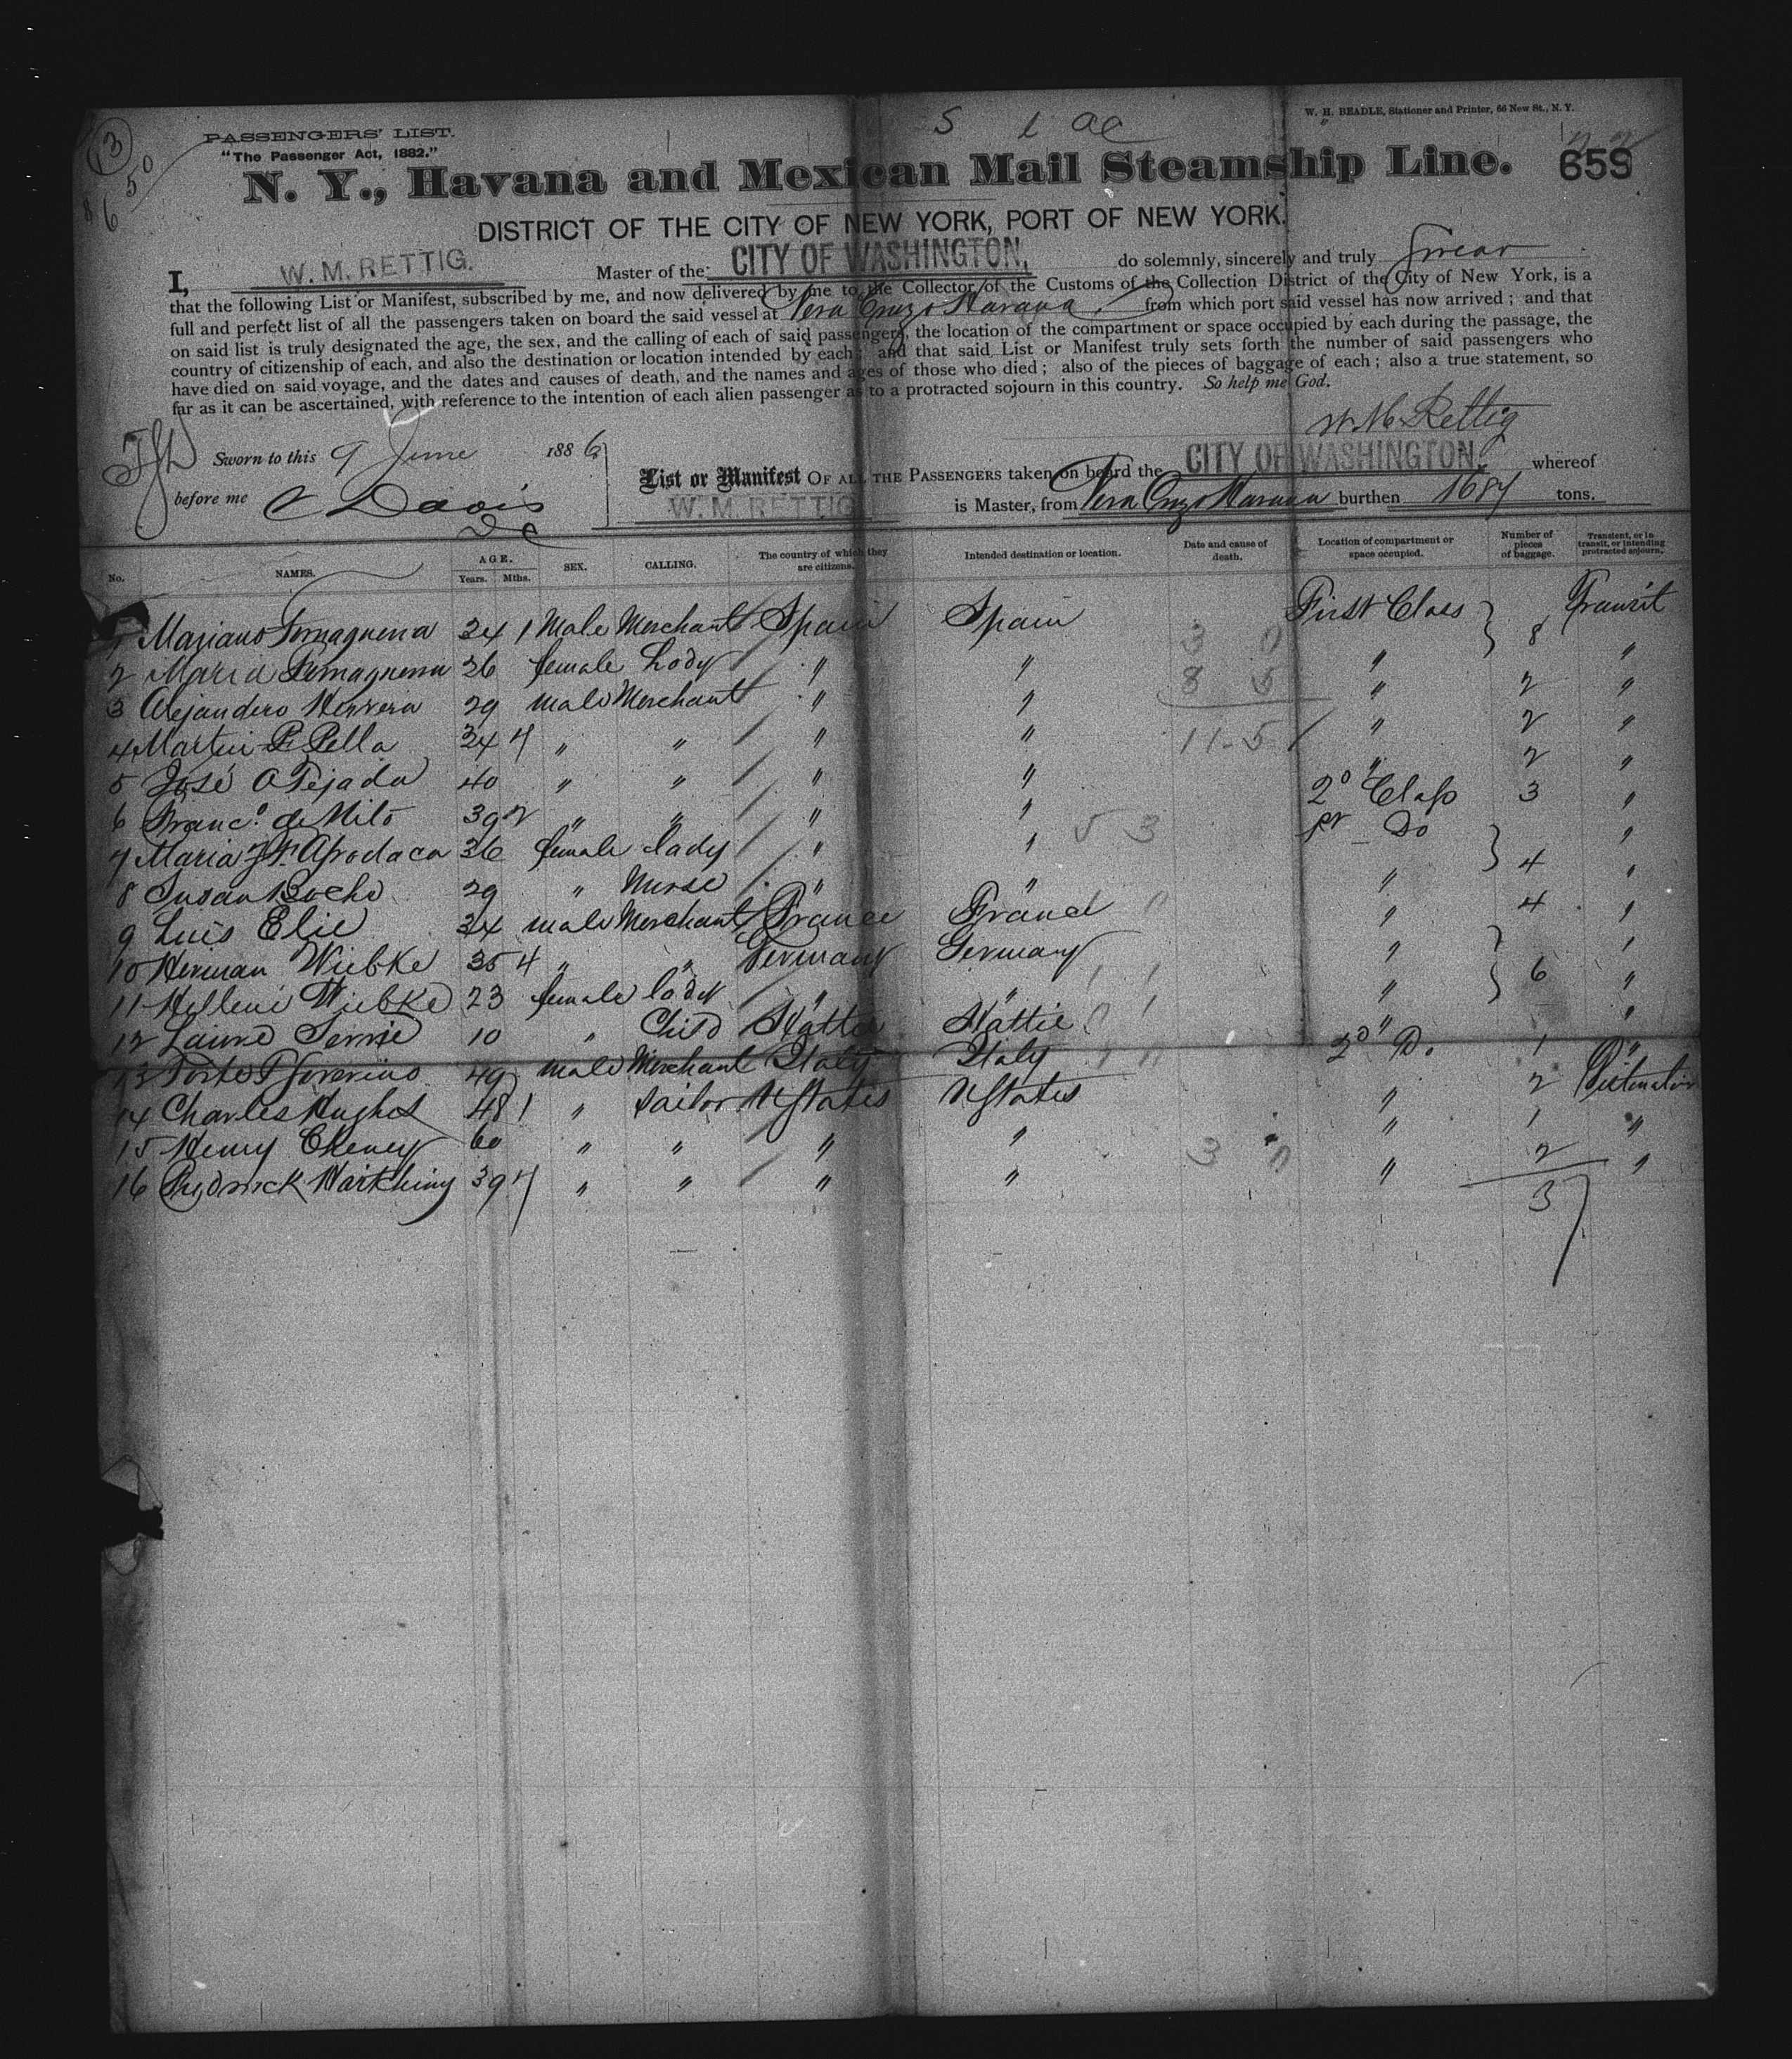 13
8650
S l
W. H. BEADLE, Stationer and Printer, 66 New St., N. Y.
PASSENGERS' LIST.
"The Passenger Act, 1882."
N. Y., Havana and Mexican Mail Steamship Line. 659
DISTRICT OF THE CITY OF NEW YORK, PORT OF NEW YORK.
I, W. M. RETTIG. Master of the CITY OF WASHINGTON, do solemnly, sincerely and truly Swear
that the following List or Manifest, subscribed by me, and now delivered by me to the Collector of the Customs of the Collection District of the City of New York, is a
full and perfect list of all the passengers taken on board the said vessel at Vera Cruz & Havana. from which port said vessel has now arrived ; and that
on said list is truly designated the age, the sex, and the calling of each of said passengers, the location of the compartment or space occupied by each during the passage, the
country of citizenship of each, and also the destination or location intended by each ; and that said List or Manifest truly sets forth the number of said passengers who
have died on said voyage, and the dates and causes of death, and the names and ages of those who died ; also of the pieces of baggage of each ; also a true statement, so
far as it can be ascertained, with reference to the intention of each alien passenger as to a protracted sojourn in this country. So help me God.
W M Rettig
Sworn to this 9 June 1886
before me C Davis
DC
List or Manifest OF ALL THE PASSENGERS taken on board the CITY OF WASHINGTON. whereof
W. M. RETTIG is Master, from Vera Cruz & Havana burthen 1684 tons.
No. NAMES. AGE. Years. Mths. SEX. CALLING. The country of which they are citizens. Intended destination or location. Date and cause of death. Location of compartment or space occupied. Number of pieces of baggage. Transient, or in transit, or intending protracted sojourn.
1 Mariano 34 1 Male Merchant Spain Spain First Class 8 Transit
2 Maria 26 female Lady " " " "
3 Alejandero Herrera 29 male Merchant " " " 2 "
4 Martin P. Pella 34 4 " " " " " 2 "
5 José A Tejada 40 " " " " " 2 "
6 Franc.o de Milo 39 2 " " " " 2o Class 3 "
7 Maria Apodaca 36 female lady " " Do "
8 Susan Rocho 29 " Nurse " " " 4 "
9 Luis Elie 34 male Merchant France France " 4 "
10 Herman Wiebke 35 4 " " Germany Germany " "
11 Hellene Wiebke 23 female lady " " " 6 "
12 10 " Child Hattie Hattie " "
13 49 male Merchant Italy Italy 2o D. 1 "
14 Charles Hughes 48 1 " Sailor UStates UStates " 2
15 Henry Cheney 60 " " " " " 1 "
16 39 4 " " " " " 2 "
3